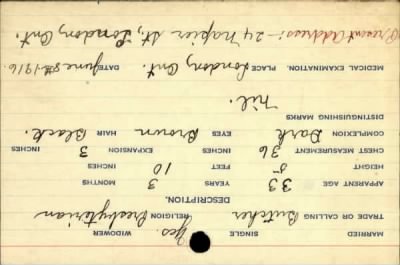 MARRIED Yes. SINGLE WIDOWER
TRADE OR CALLING Butcher RELIGION Presbyterian
DESCRIPTION.
APPARENT AGE 33 YEARS 3 MONTHS
HEIGHT 5 FEET 10 INCHES
CHEST MEASUREMENT 36 INCHES EXPANSION 3 INCHES
COMPLEXION Dark EYES Brown HAIR Black.
DISTINGUISHING MARKS
Nil.
MEDICAL EXAMINATION. PLACE London, Ont. DATE June 8th 1916.
Present Address:- 24 Napier St, London, Ont.